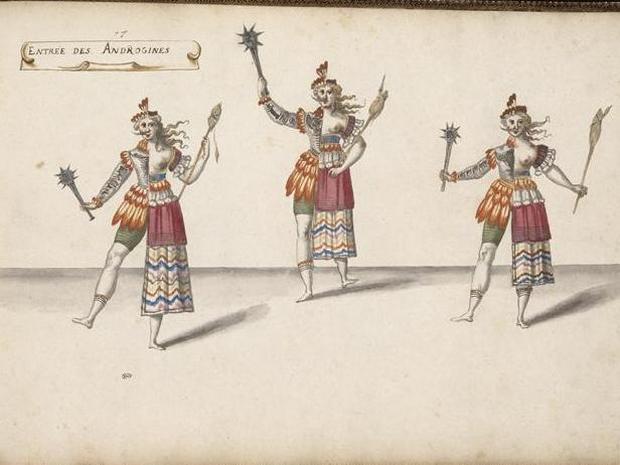 17
ENTREE DES ANDROGINES